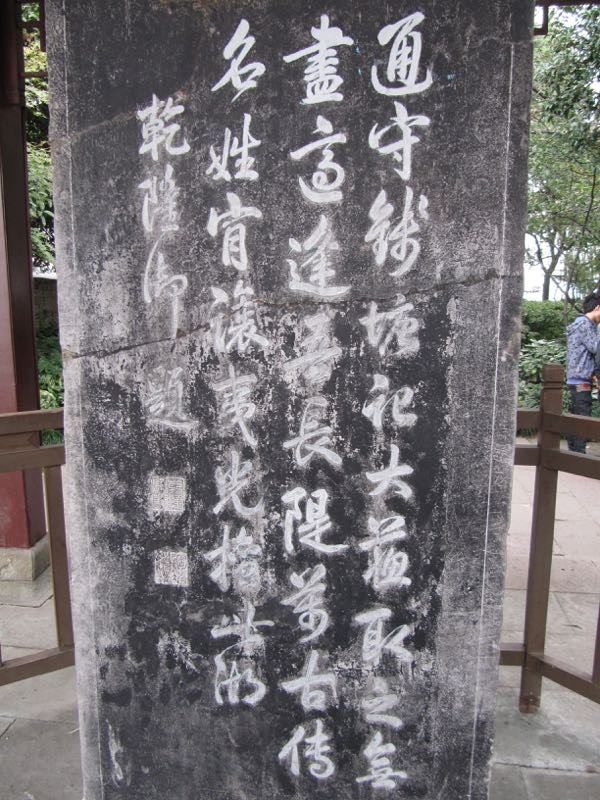 通守錢塘記大蘇取之無
盡適逢吾長隄萬古傳
名姓肎讓夷光擅此湖
乾隆御題